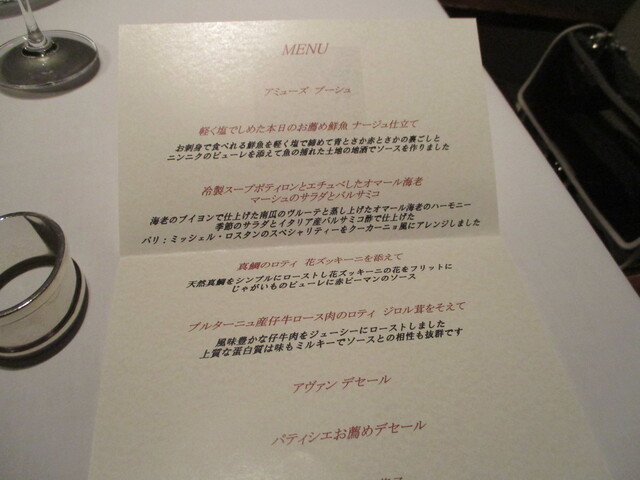 MENU
アミューズ ブーシュ
軽く塩でしめた本日のお薦め鮮魚 ナージュ仕立て
お刺身で食べれる鮮魚を軽く塩で締めて青とさか赤とさかの裏ごしと
ニンニクのピューレを添えて魚の捕れた土地の地酒でソースを作りました
冷製スープポティロンとエチュベしたオマール海老
マーシュのサラダとバルサミコ
海老のブイヨンで仕上げた南瓜のヴルーテと蒸し上げたオマール海老のハーモニー
季節のサラダとイタリア産バルサミコ酢で仕上げた
パリ：ミッシェル・ロスタンのスペシャリティーをクーカーニョ風にアレンジしました
真鯛のロティ 花ズッキーニを添えて
天然真鯛をシンプルにローストし花ズッキーニの花をフリットに
じゃがいものピューレに赤ピーマンのソース
ブルターニュ産仔牛ロース肉のロティ ジロル茸をそえて
風味豊かな仔牛肉をジューシーにローストしました
上質な蛋白質は味もミルキーでソースとの相性も抜群です
アヴァン デセール
パティシエお薦めデセール